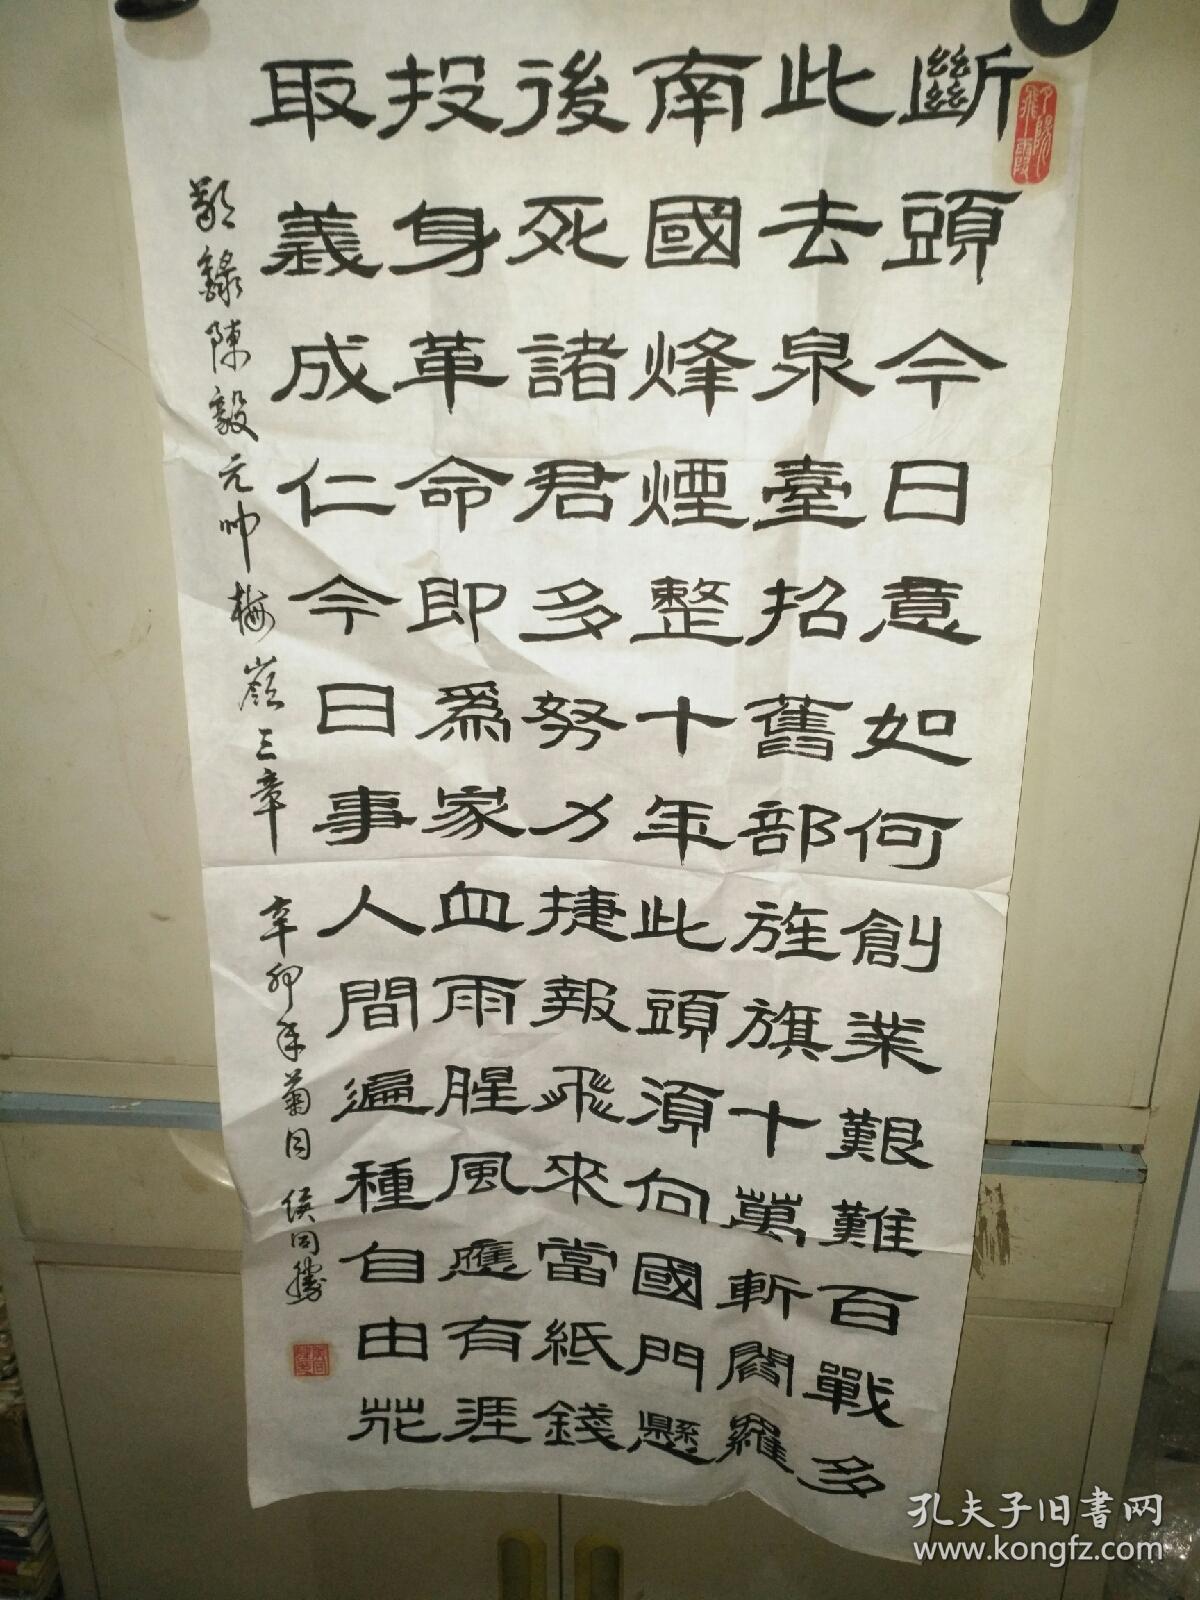 斷頭今日意如何創業艱難百戰多
此去泉臺招舊部旌旗十萬斬閻羅
南國烽煙整十年此頭須向國門懸
後死諸君多努力捷報飛來當紙錢
投身革命即爲家血雨腥風應有涯
取義成仁今日事人間遍種自由花
敬錄陳毅元帥梅嶺三章 辛卯年菊月 侯同勝
孔夫子旧书网
www.kongfz.com